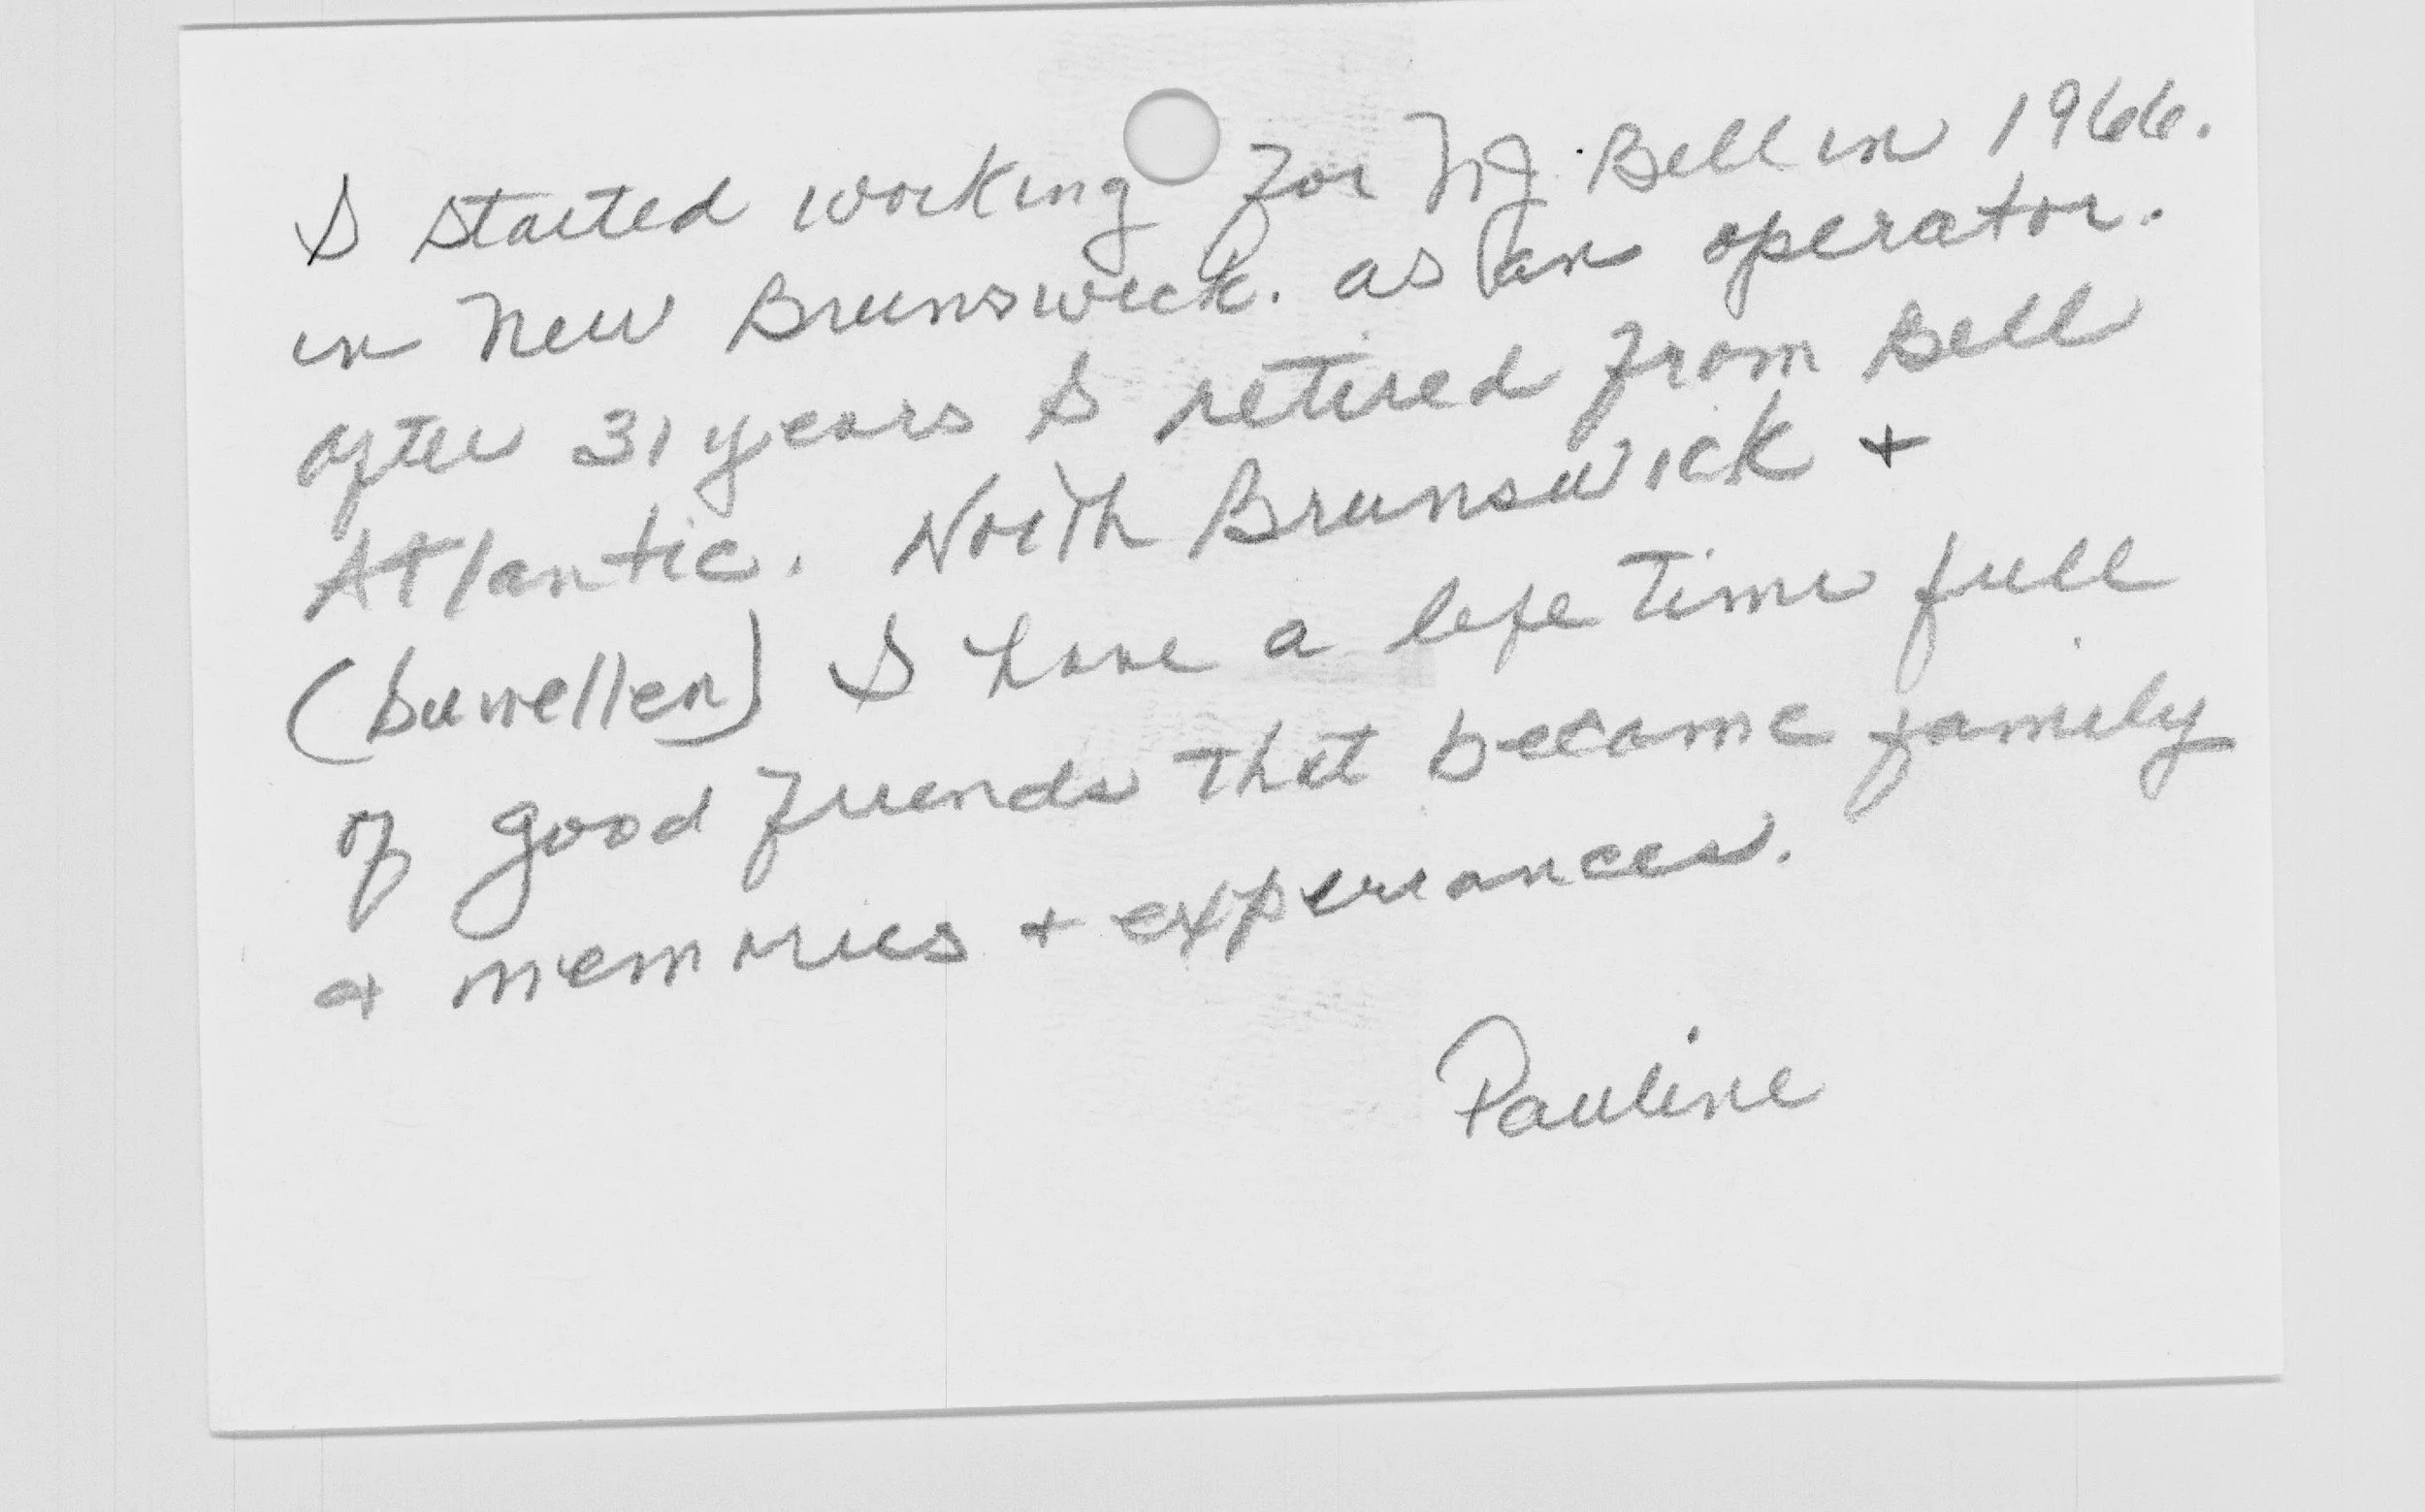 I started working for NJ. Bell in 1966.
in New Brunswick. as an operator.
after 31 years I retired from Bell
Atlantic. North Brunswick +
(Dunellen) I have a life time full
of good friends that became family
+ memories + experiances.
Pauline